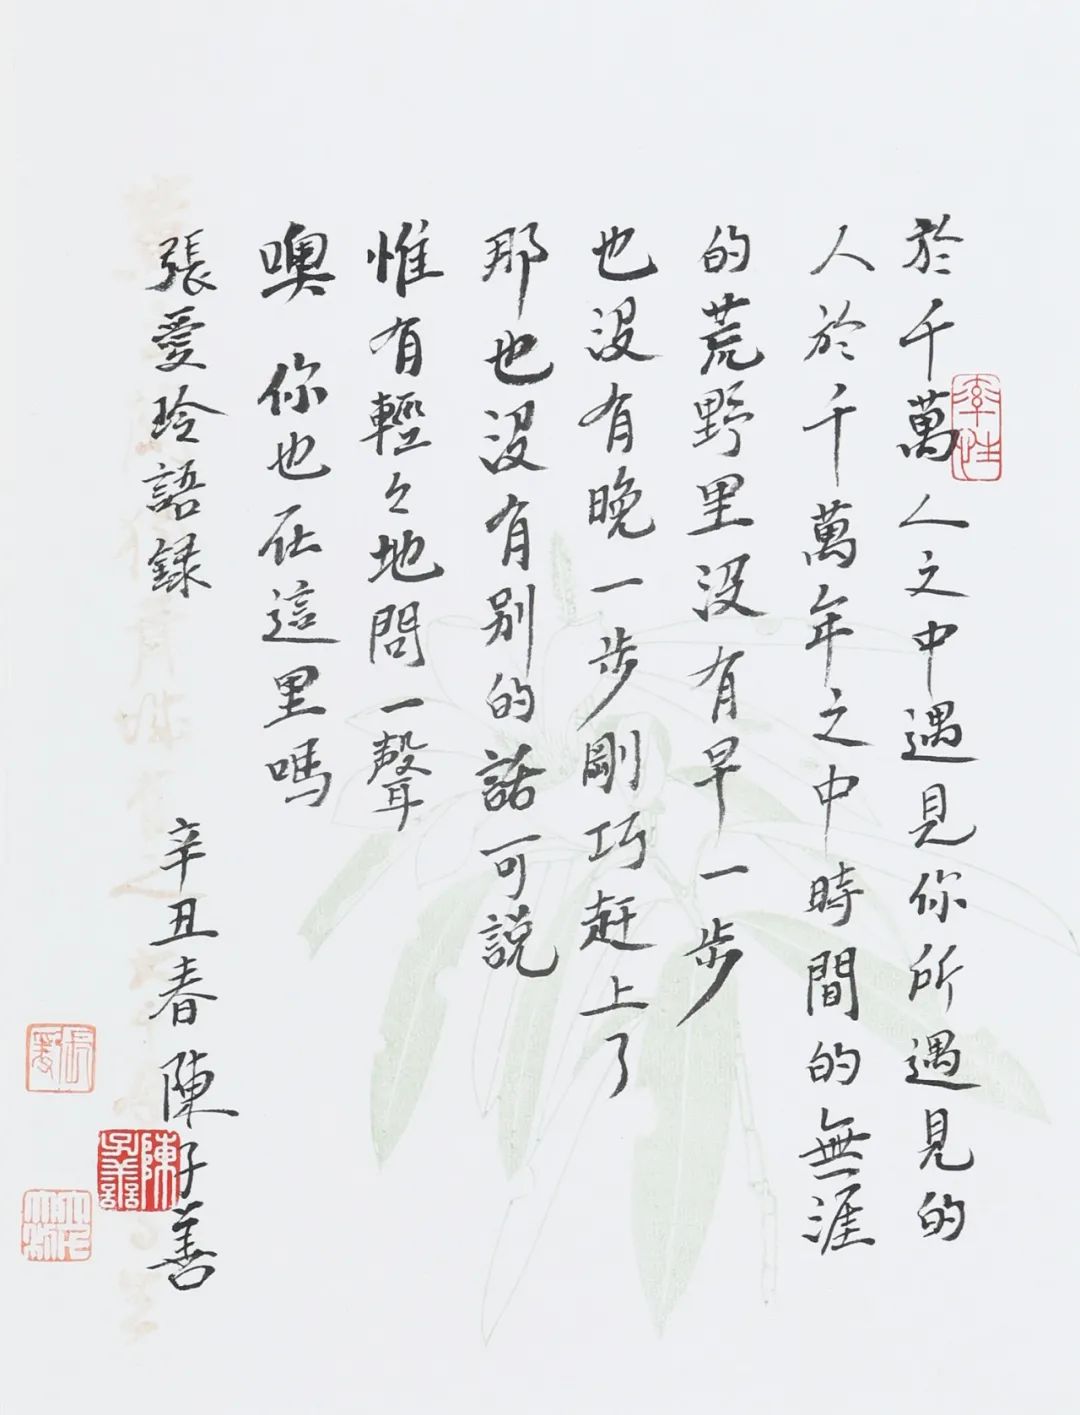 於千萬人之中遇見你所遇見的
人於千萬年之中時間的無涯
的荒野里没有早一步
也没有晚一步剛巧赶上了
那也没有别的話可説
惟有輕々地問一聲
噢 你也在這里嗎
張愛玲語録 辛丑春 陳子善
率性
陳子善